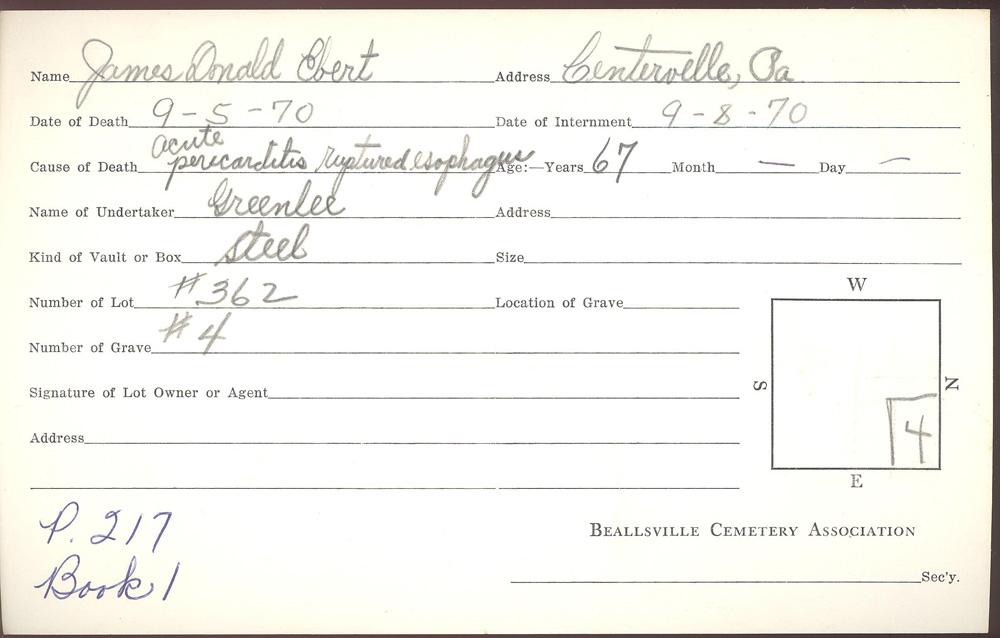 Name James Donald Ebert Address Centerville, Pa
Date of Death 9-5-70 Date of Internment 9-8-70
acute
Cause of Death pericarditis ruptured esophagus Age:—Years 67 Month — Day —
Name of Undertaker Greenlee Address
Kind of Vault or Box Steel Size
Number of Lot #362 Location of Grave
Number of Grave #4
Signature of Lot Owner or Agent
Address
W
S
N
4
E
P. 217
Book 1
BEALLSVILLE CEMETERY ASSOCIATION
Sec'y.